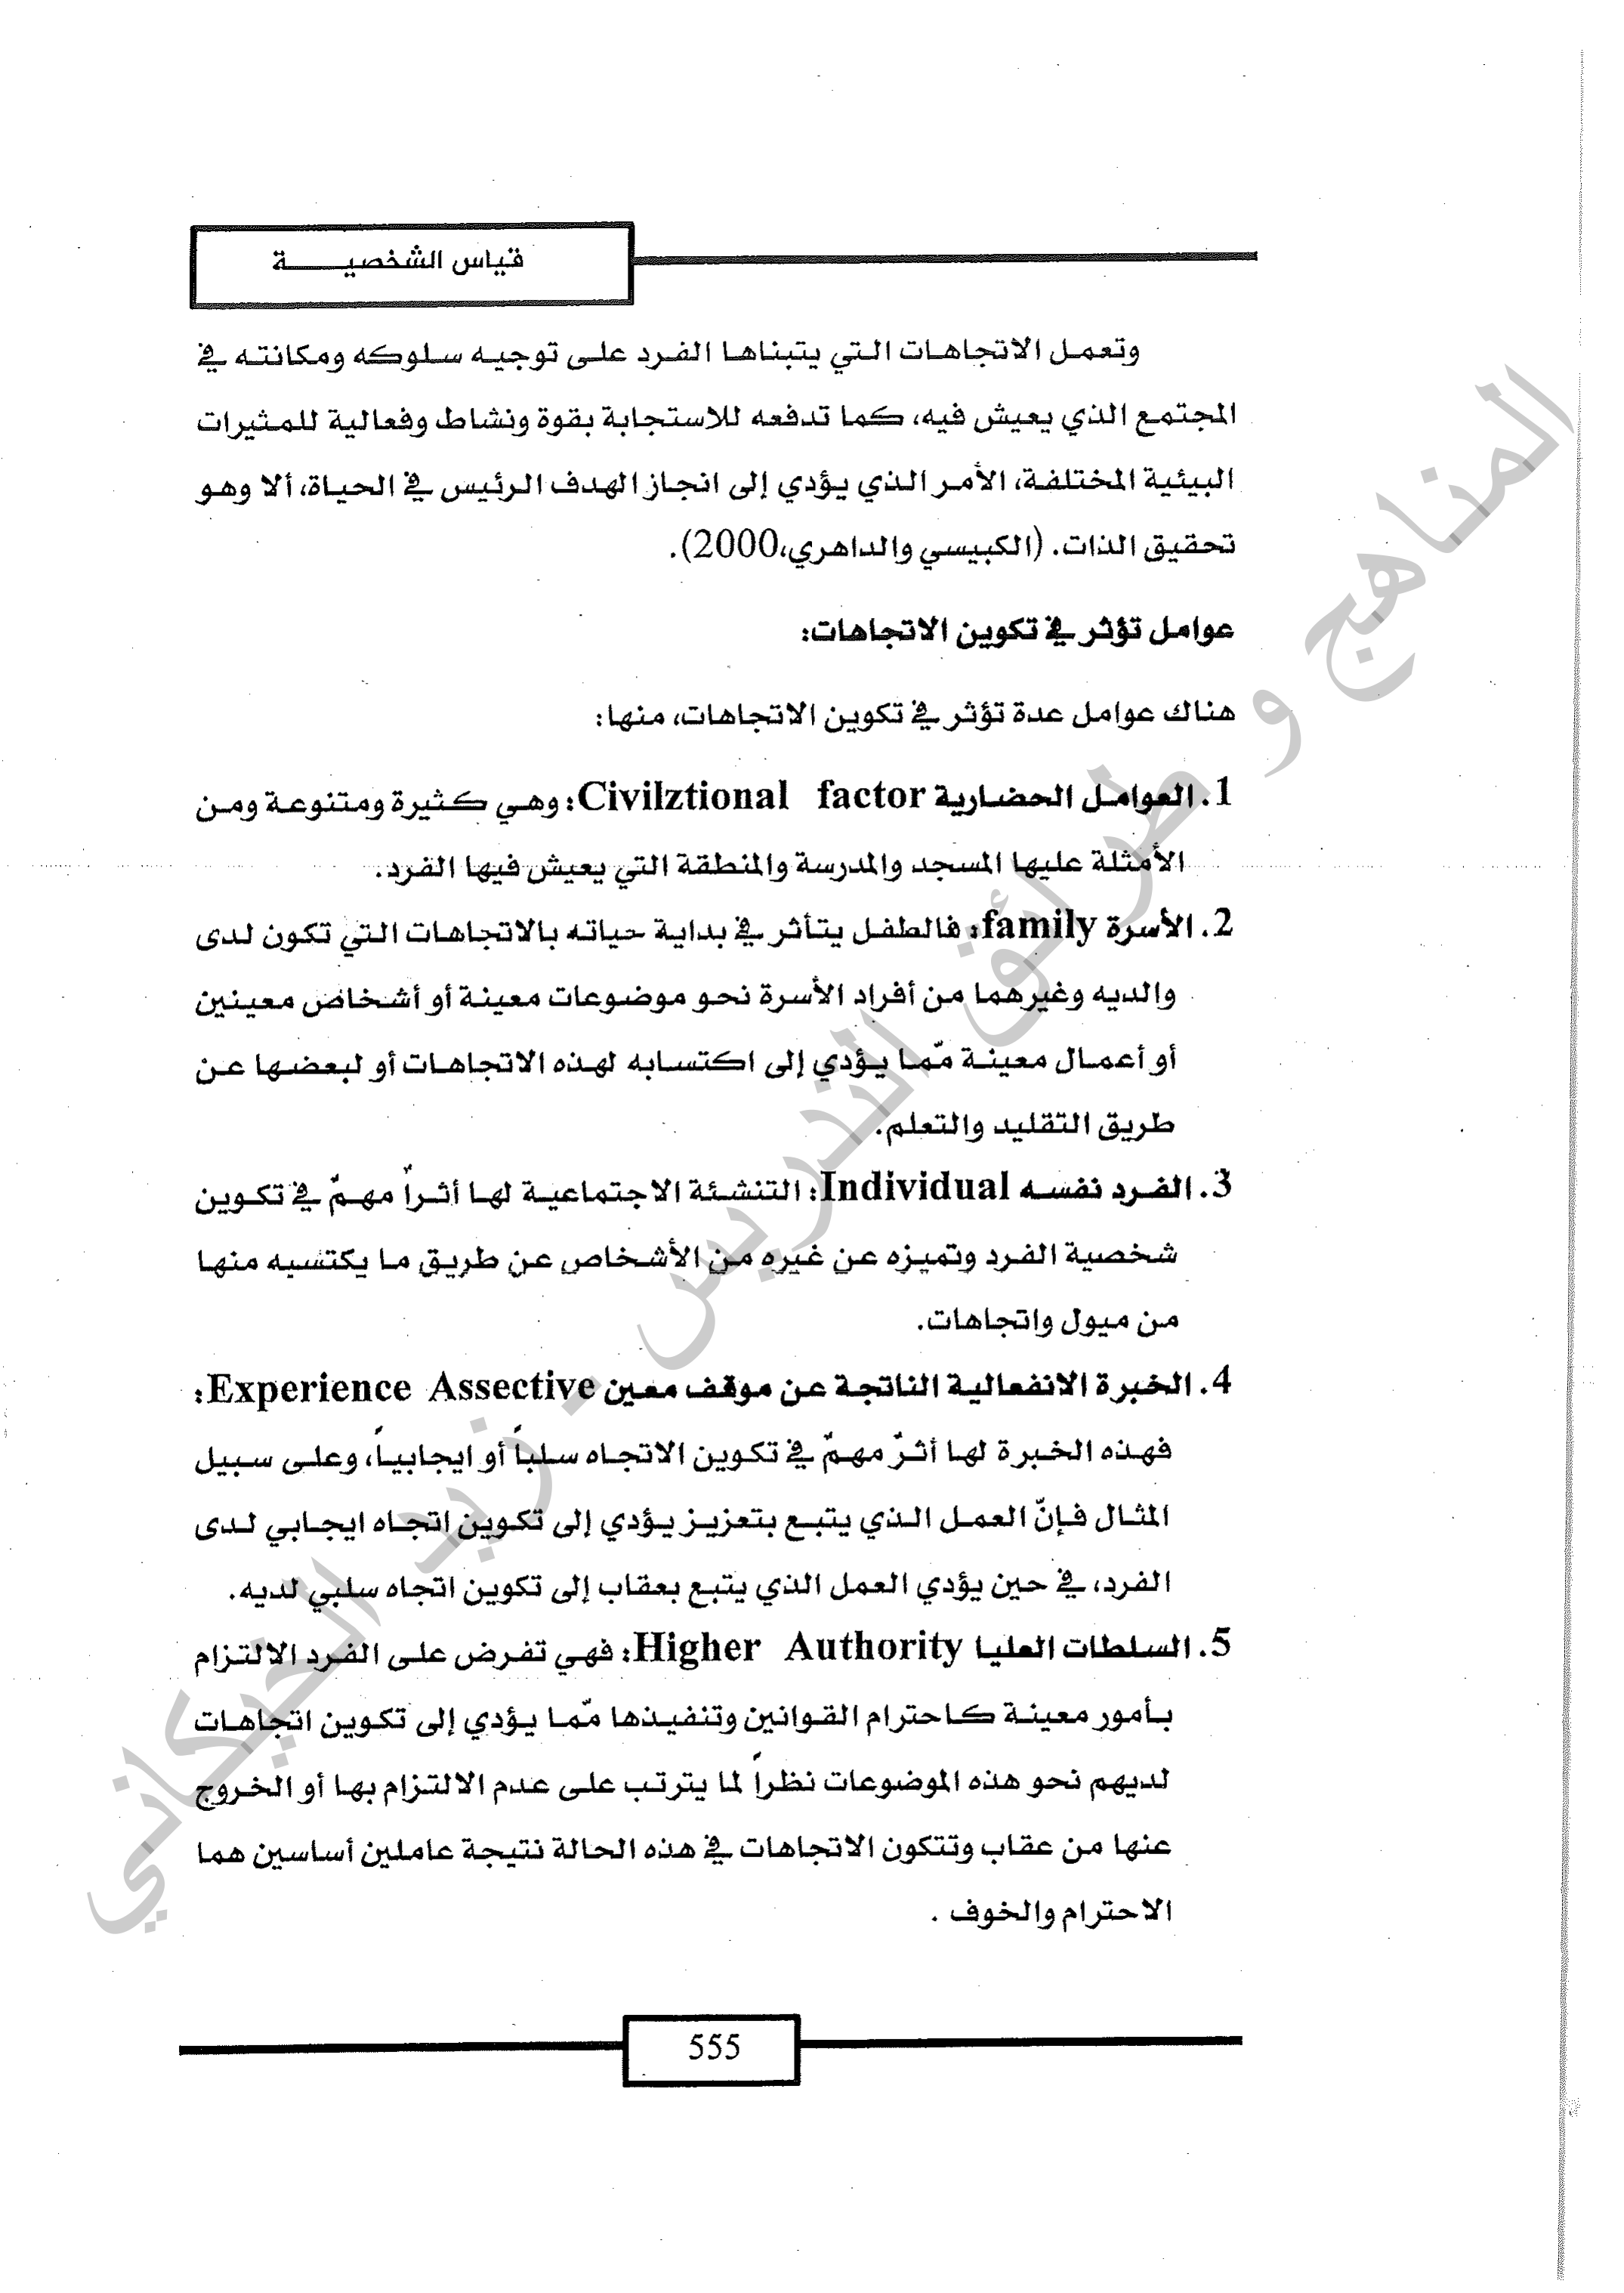 قياس الشخصيـــــــة
وتعمل الاتجاهات التي يتبناها الفرد على توجيه سلوكه ومكانته في
المجتمع الذي يعيش فيه، كما تدفعه للاستجابة بقوة ونشاط وفعالية للمثيرات
البيئية المختلفة، الأمر الذي يؤدي إلى انجاز الهدف الرئيس في الحياة، ألا وهو
تحقيق الذات. (الكبيسي والداهري،2000).
عوامل تؤثر في تكوين الاتجاهات:
هناك عوامل عدة تؤثر في تكوين الاتجاهات، منها:
1. العوامل الحضارية Civilztional factor: وهي كثيرة ومتنوعة ومن
الأمثلة عليها المسجد والمدرسة والمنطقة التي يعيش فيها الفرد.
2. الأسرة family: فالطفل يتأثر في بداية حياته بالاتجاهات التي تكون لدى
والديه وغيرهما من أفراد الأسرة نحو موضوعات معينة أو أشخاص معينين
أو أعمال معينة ممّا يؤدي إلى اكتسابه لهذه الاتجاهات أو لبعضها عن
طريق التقليد والتعلم.
3. الفرد نفسه Individual: التنشئة الاجتماعية لها أثراً مهمّ في تكوين
شخصية الفرد وتميزه عن غيره من الأشخاص عن طريق ما يكتسبه منها
من ميول واتجاهات.
4. الخبرة الانفعالية الناتجة عن موقف معين Experience Assective:
فهذه الخبرة لها أثرٌ مهمّ في تكوين الاتجاه سلباً أو ايجابياً، وعلى سبيل
المثال فإنّ العمل الذي يتبع بتعزيز يؤدي إلى تكوين اتجاه ايجابي لدى
الفرد، في حين يؤدي العمل الذي يتبع بعقاب إلى تكوين اتجاه سلبي لديه.
5. السلطات العليا Higher Authority: فهي تفرض على الفرد الالتزام
بأمور معينة كاحترام القوانين وتنفيذها ممّا يؤدي إلى تكوين اتجاهات
لديهم نحو هذه الموضوعات نظراً لما يترتب على عدم الالتزام بها أو الخروج
عنها من عقاب وتتكون الاتجاهات في هذه الحالة نتيجة عاملين أساسين هما
الاحترام والخوف .
555
المناهج و طرائق التدريس - زيد الخيكاني